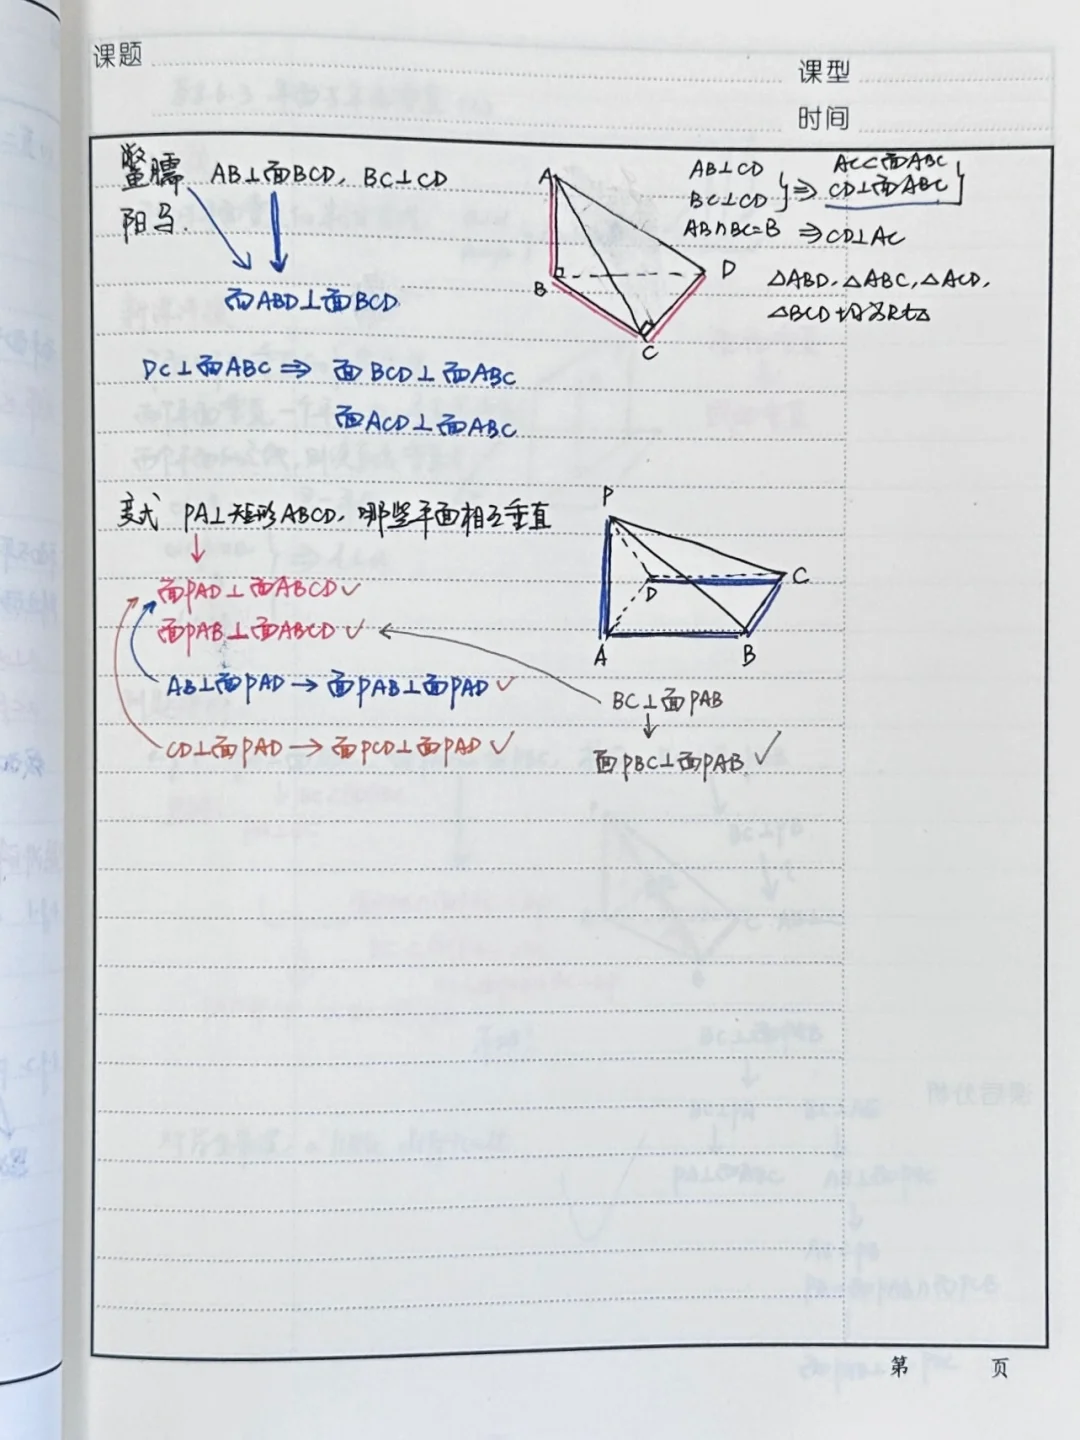 课题
课型
时间
鳖臑 AB⊥面BCD, BC⊥CD
阳马.
面ABD⊥面BCD
A
B
C
D
AB⊥CD
BC⊥CD
AB∩BC=B
⇒
AC⊂面ABC
CD⊥面ABC
⇒CD⊥AC
△ABD, △ABC, △ACD,
△BCD均为Rt△
DC⊥面ABC ⇒ 面BCD⊥面ABC
面ACD⊥面ABC
变式 PA⊥矩形ABCD, 哪些平面相互垂直
面PAD⊥面ABCD✓
面PAB⊥面ABCD✓
AB⊥面PAD→面PAB⊥面PAD✓
CD⊥面PAD→面PCD⊥面PAD✓
P
C
D
A
B
BC⊥面PAB
面PBC⊥面PAB✓
第 页